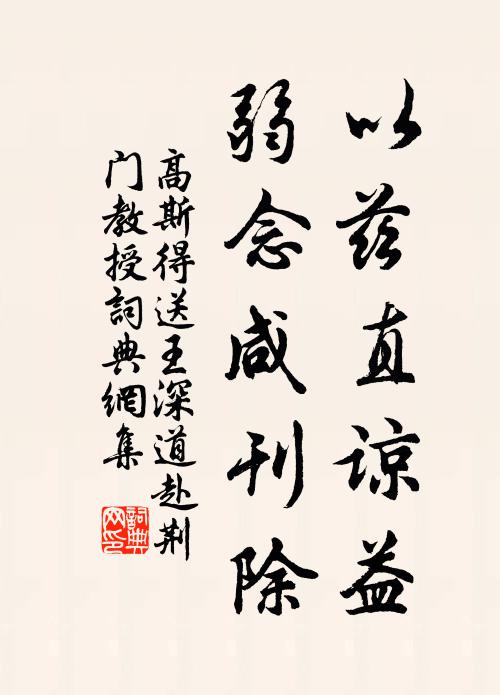 以兹直谅益
弱念咸刊除
高斯得送王深道赴荆
门教授詞典網集
詞典
网印